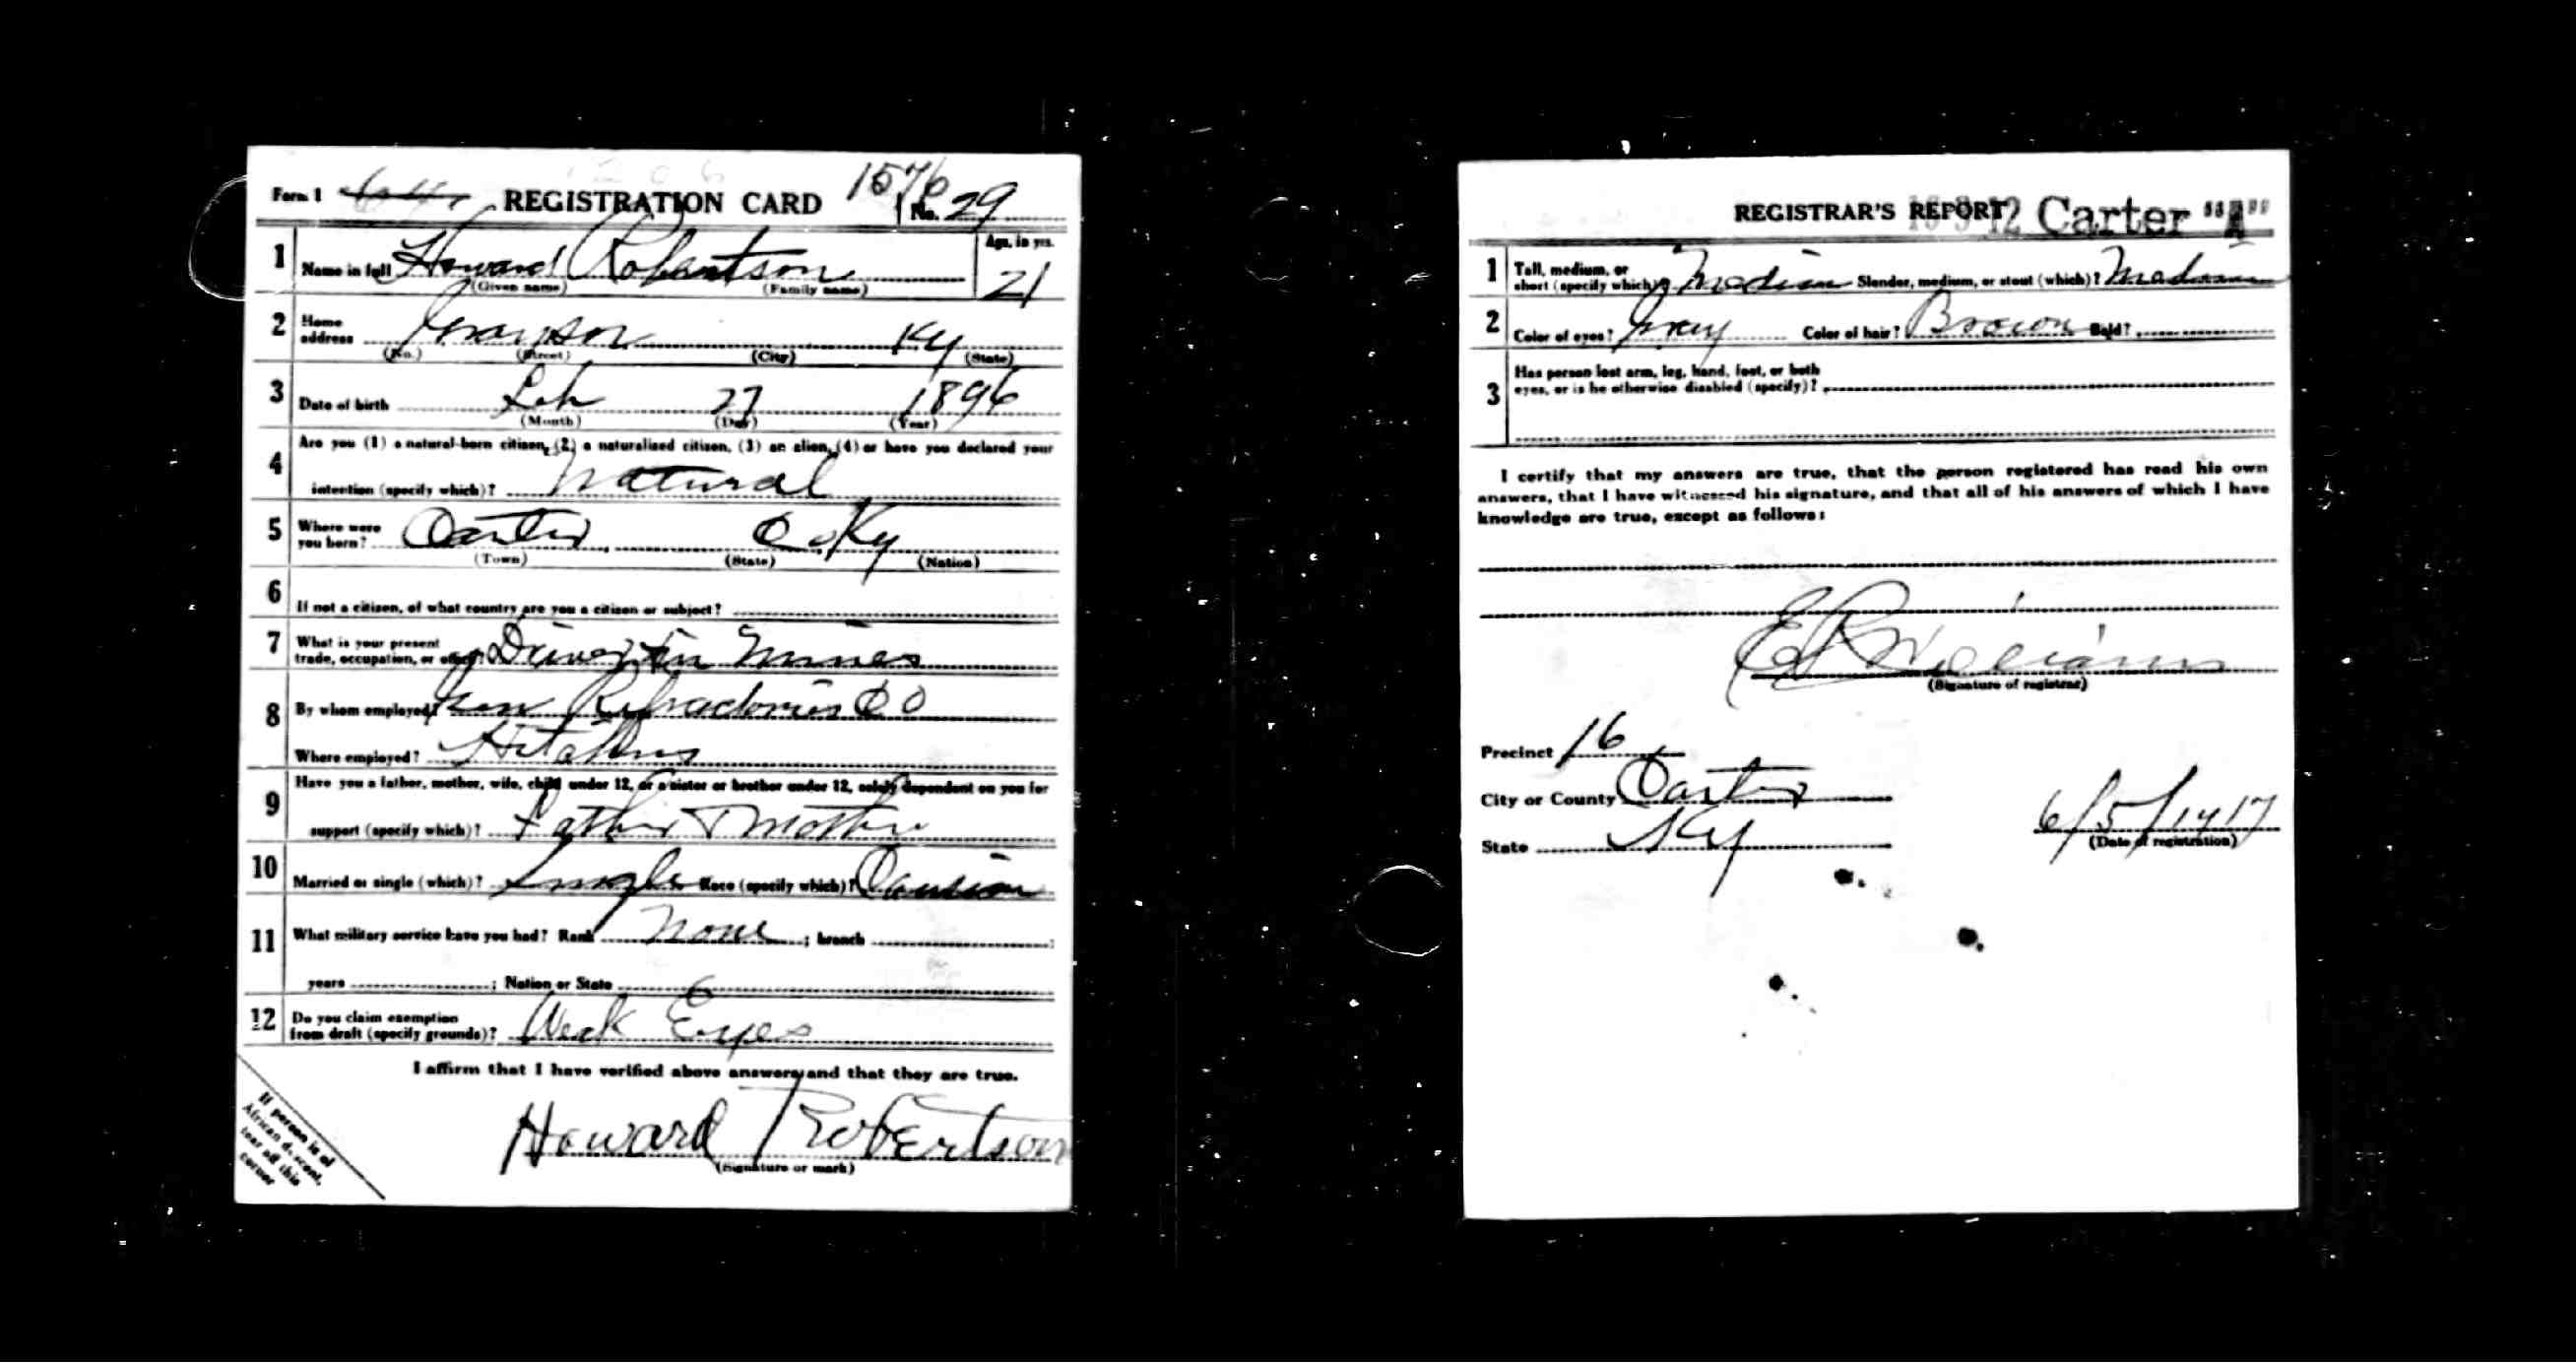 Form 1 REGISTRATION CARD 1576 No. 29
1 Name in full Howard Robertson Age, in yrs. 21
(Given name) (Family name)
2 Home address Grayson Ky
(No.) (Street) (City) (State)
3 Date of birth Feb 27 1896
(Month) (Day) (Year)
4 Are you (1) a natural-born citizen, (2) a naturalized citizen, (3) an alien, (4) or have you declared your
intention (specify which)? Natural
5 Where were you born? Carter Co Ky
(Town) (State) (Nation)
6 If not a citizen, of what country are you a citizen or subject?
7 What is your present trade, occupation, or office? Driver in Mines
8 By whom employed? Gen Refractories Co
Where employed? Hitchins
9 Have you a father, mother, wife, child under 12, or a sister or brother under 12, solely dependent on you for
support (specify which)? Father & Mother
10 Married or single (which)? Single Race (specify which)?
11 What military service have you had? Rank None ; branch ;
years ; Nation or State
12 Do you claim exemption from draft (specify grounds)? Weak Eyes
I affirm that I have verified above answers and that they are true.
Howard Robertson
(Signature or mark)
If person is of
African descent,
tear off this
corner
REGISTRAR'S REPORT Carter "A"
1 Tall, medium, or short (specify which)? Medium Slender, medium, or stout (which)? Medium
2 Color of eyes? Gray Color of hair? Brown Bald?
3 Has person lost arm, leg, hand, foot, or both
eyes, or is he otherwise disabled (specify)?
I certify that my answers are true, that the person registered has read his own
answers, that I have witnessed his signature, and that all of his answers of which I have
knowledge are true, except as follows:
Williams
(Signature of registrar)
Precinct 16
City or County Carter
State Ky 6/5/1917
(Date of registration)